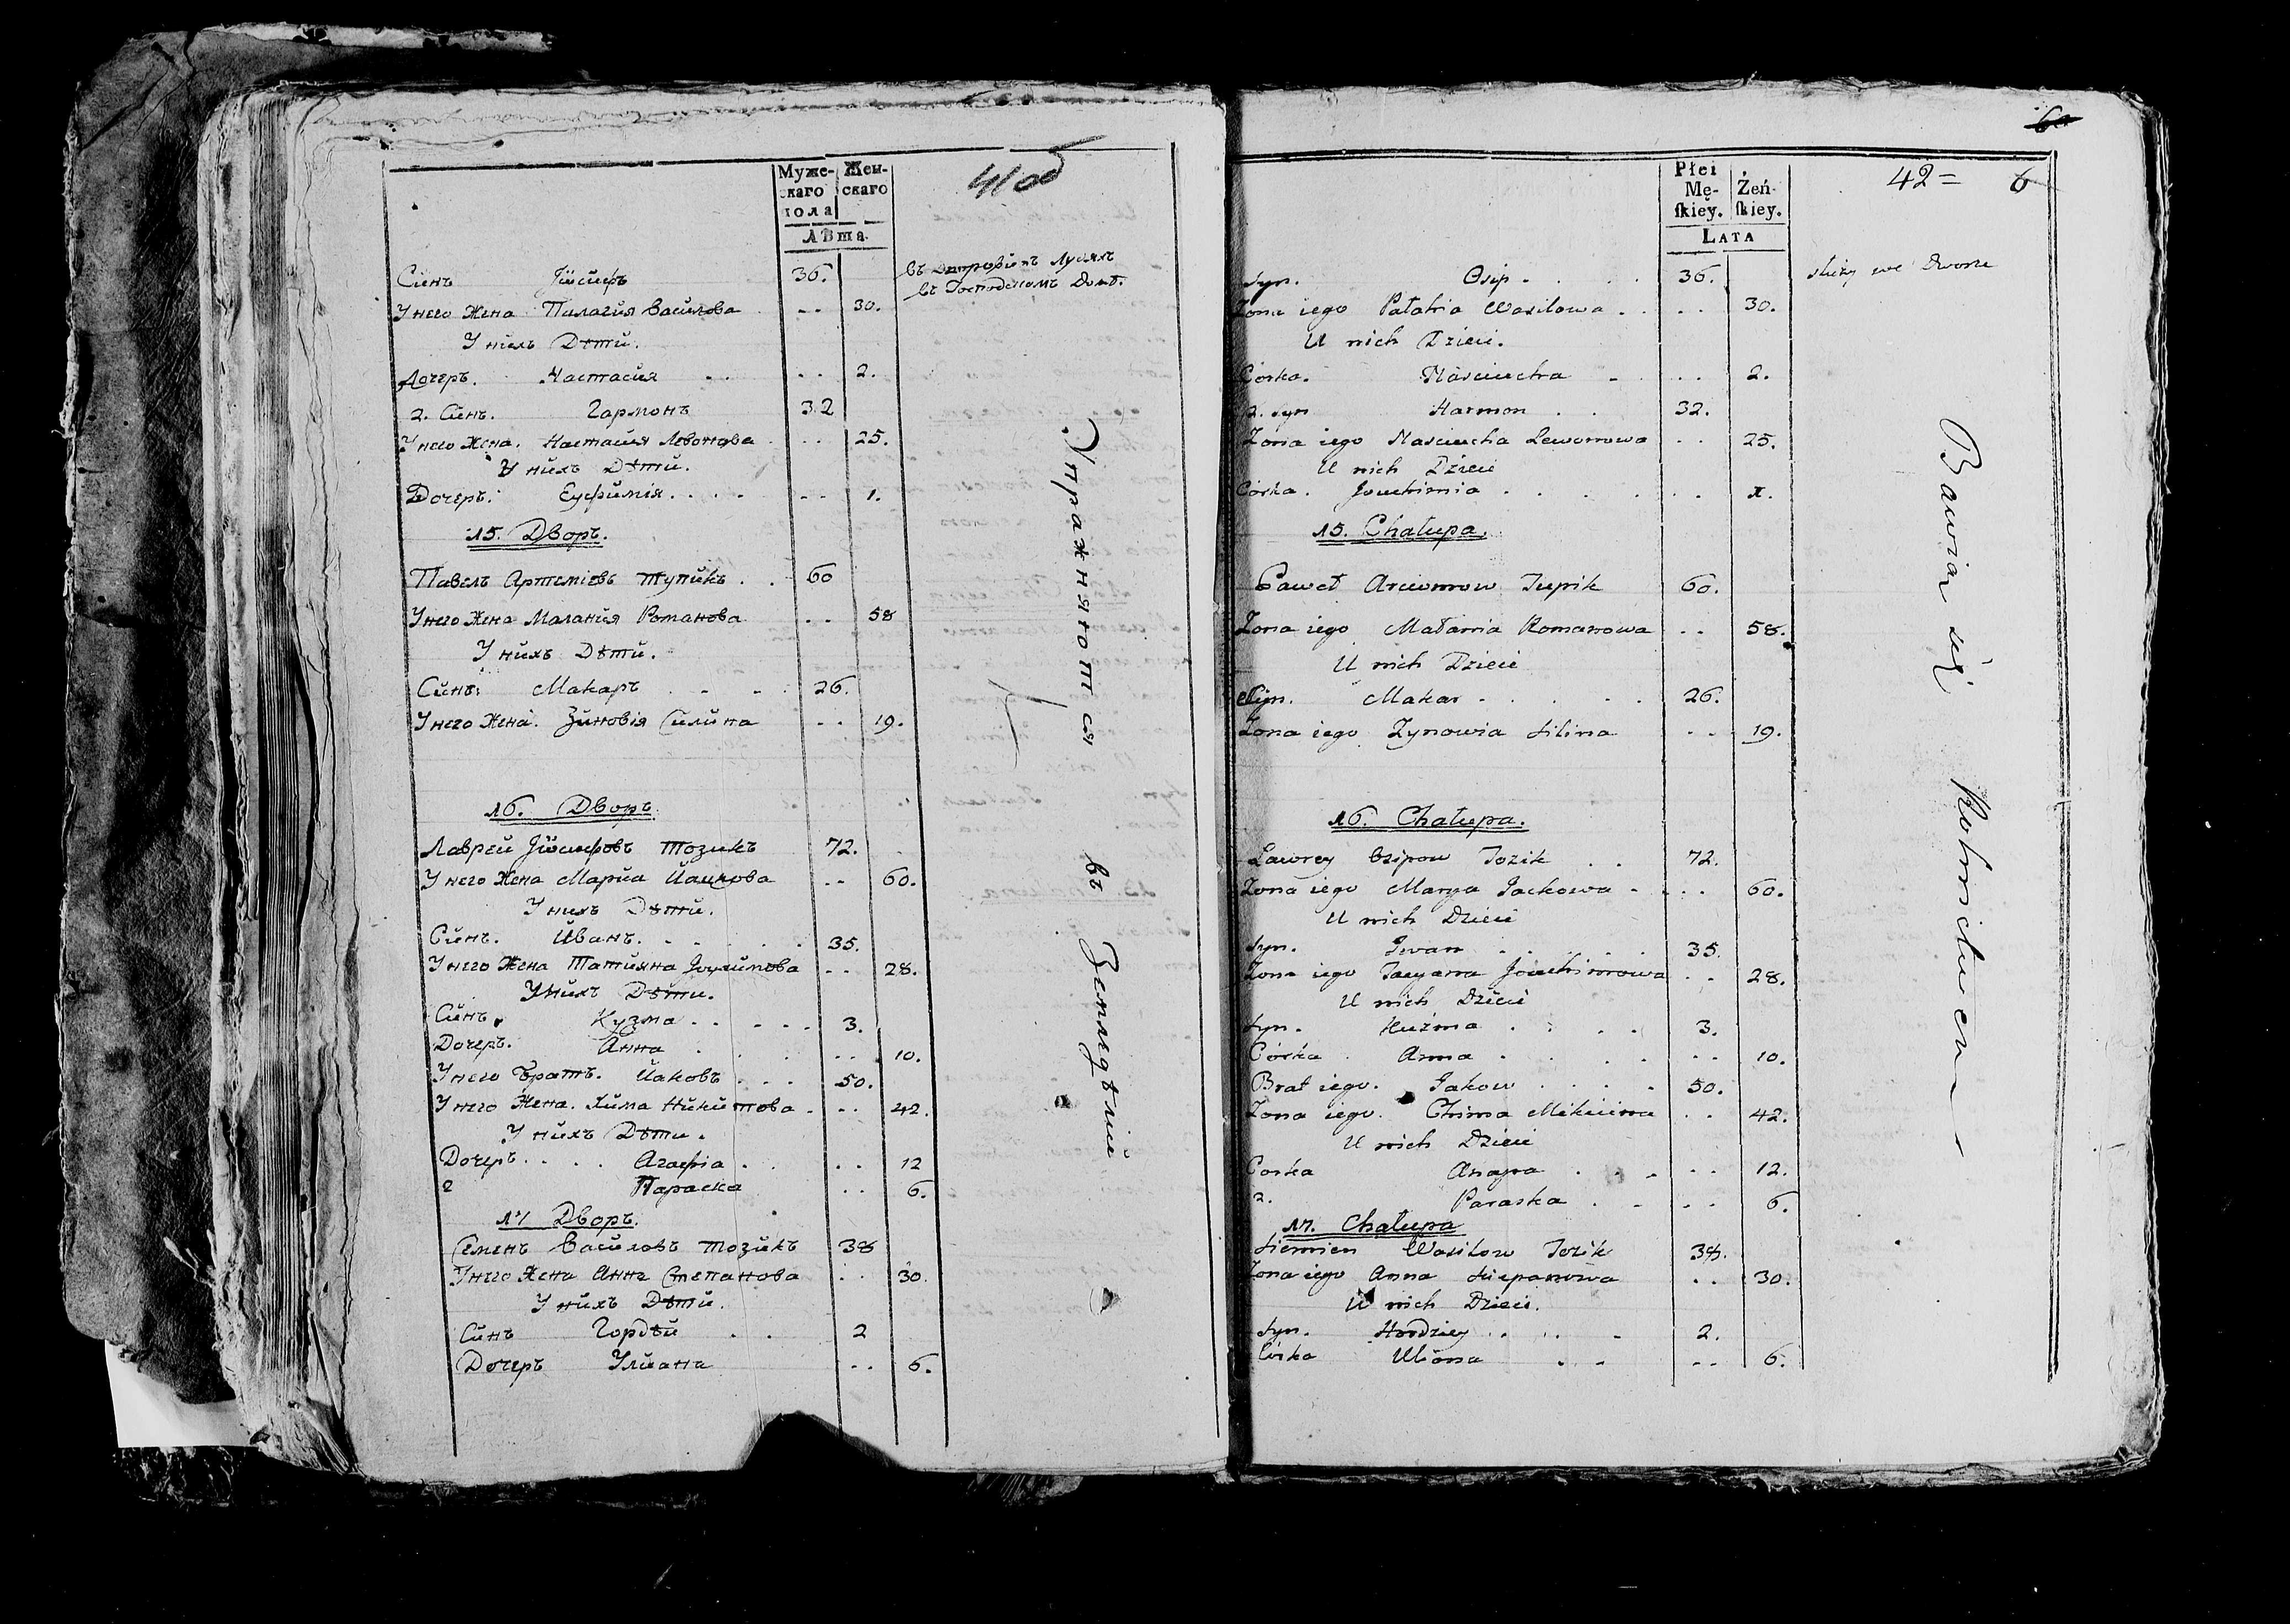 41об
Муже- Жен-
скаго скаго
пола
Лѣта.
Синъ Іосифъ 36.
въ Господскомъ Домѣ.
У него Жена Пилагия Василова .. 30.
У нихъ Дѣти.
Дочерь. Настасия .. 2.
2. Синъ. Гармонъ 32
У него Жена. Настасия Левонова .. 25.
У нихъ Дѣти.
Дочерь. Еуфимія .. 1.
15. Дворъ.
Павелъ Артеміевъ Тупикъ 60
У него Жена Малания Романова .. 58
У нихъ Дѣти.
Синъ. Макаръ 26.
У него Жена. Зиновія Силина .. 19.
16. Дворъ.
Лаврей Іосифовъ Тозикъ 72.
У него Жена Мариа Йацкова .. 60.
У нихъ Дѣти.
Синъ. Иванъ. 35.
У него Жена Татияна .. 28.
У нихъ Дѣти.
Синъ. Кузма 3.
Дочерь. Анна .. 10.
У него Братъ. Иаковъ 50.
У него Жена. Хима Никитова .. 42.
У нихъ Дѣти.
Дочерь Агафіа .. 12
2 Параска .. 6.
17 Дворъ.
Семенъ Василовъ Тозикъ 38
У него Жена Анна Степанова .. 30.
У нихъ Дѣти.
Синъ Гордѣй 2
Дочерь Улиана .. 6.
Упражняются въ Земледѣліе
60
42= 6
Płei
Mę- Żeń-
ſkiey. ſkiey.
Lata
Syn. Osip 36. służy we Dworze
Zona iego Pałahia Wasilowa .. 30.
U nich Dzieci.
Corka. Nasciucha .. 2.
2. Syn Harmon 32.
Zona iego Nasciucha Lewonowa .. 25.
U nich Dzieci
Córka. Jouchimia .. 1.
15. Chałupa.
Paweł Arciomow Tupik 60.
Zona iego Małania Romanowa .. 58.
U nich Dzieci
Syn. Makar 26.
Zona iego Zynowia Silina .. 19.
16. Chałupa.
Lawrey Osipow Tozik 72.
Zona iego Marya Jackowa .. 60.
U nich Dzieci
Syn. Iwan 35.
Zona iego Tacyana Jouchimowa .. 28.
U nich Dzieci
Syn. Kuźma 3.
Córka Anna .. 10.
Brat iego. Jakow 50.
Zona iego. Chima Mikicina .. 42.
U nich Dzieci
Corka Ahapa .. 12.
2. Paraska .. 6.
17. Chałupa
Siemien Wasilow Tozik 38.
Zona iego Anna Sciepanowa .. 30.
U nich Dzieci.
Syn. Hordziey 2.
Córka Uliana .. 6.
Bawia się Rolnictwem